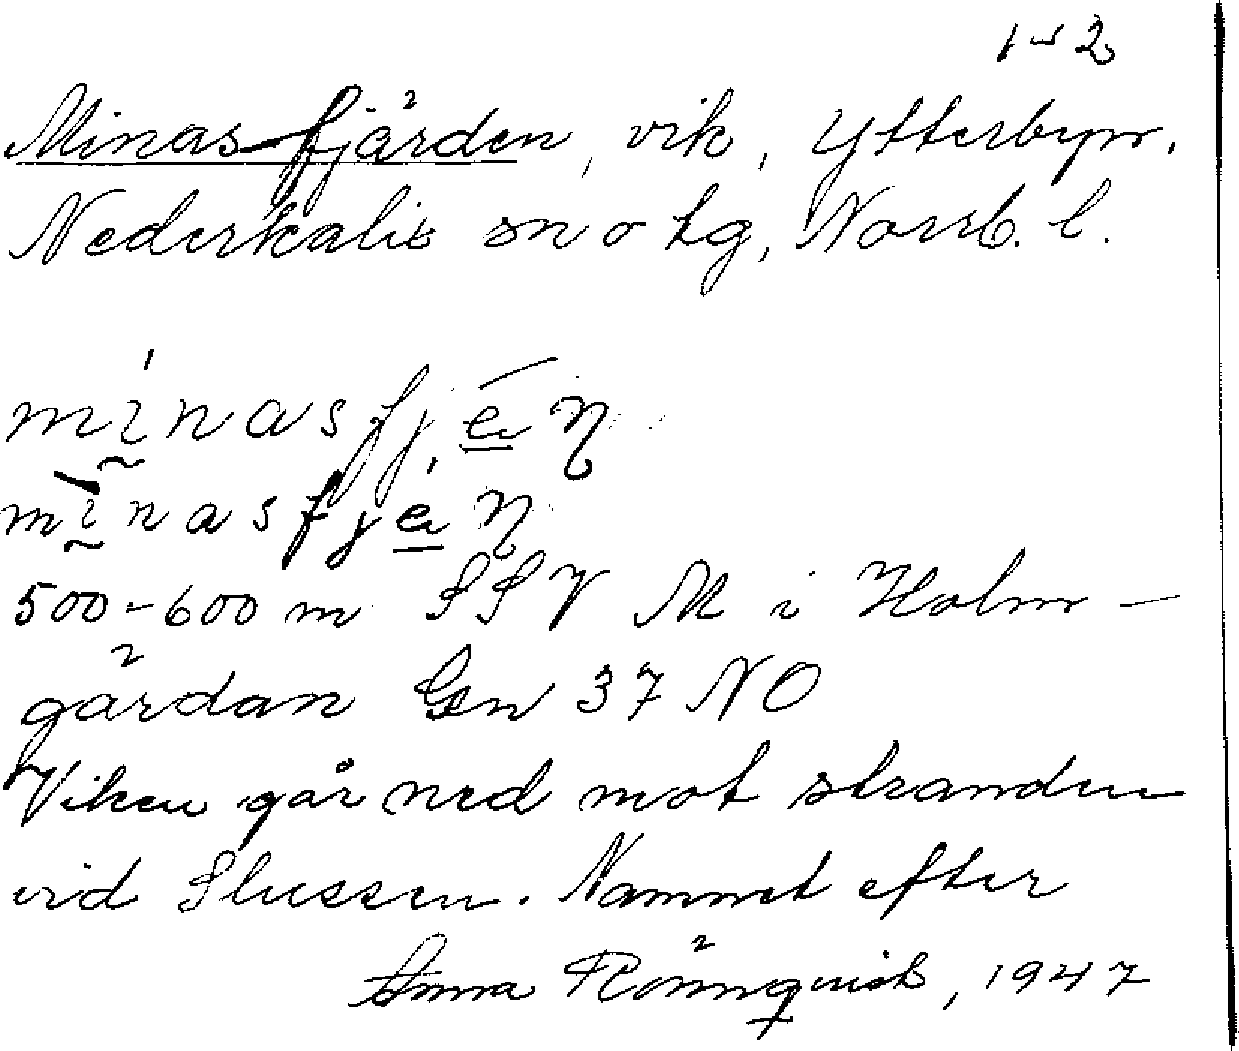 1-2
Minas-fjärden, vik, Ytterbyn,
Nederkalix sn o tg, Norrb. l.
500-600 m SSV M i Holm-
gärdan Gen 37 NO
Viken går ned mot stranden
vid Slussen. Namnet efter
Anna Rönnquist, 1947